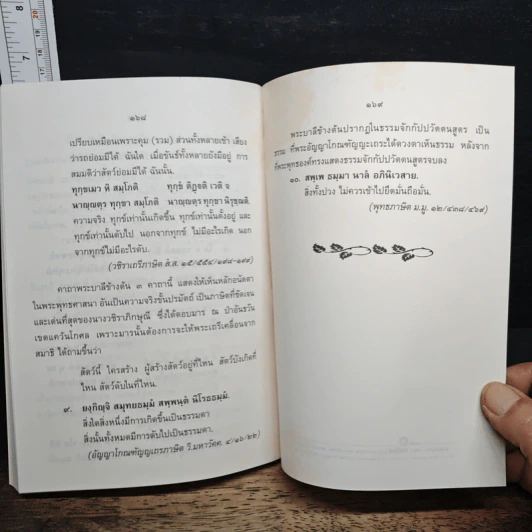 ๑๖๘
เปรียบเหมือนเพราะคุม (รวม) ส่วนทั้งหลายเข้า เสียง
ว่ารถย่อมมีได้ ฉันใด เมื่อขันธ์ทั้งหลายยังมีอยู่ การ
สมมติว่าสัตว์ย่อมมีได้ ฉันนั้น.
ทุกฺขเมว หิ สมฺโภติ ทุกฺขํ ติฏฺฐติ เวติ จ
นาญฺญตฺร ทุกฺขา สมฺโภติ นาญฺญตฺร ทุกฺขา นิรุชฺฌติ.
ความจริง ทุกข์เท่านั้นเกิดขึ้น ทุกข์เท่านั้นตั้งอยู่ และ
ทุกข์เท่านั้นดับไป นอกจากทุกข์ ไม่มีอะไรเกิด นอก
จากทุกข์ไม่มีอะไรดับ.
(วชิราเถรีภาษิต สํ.ส. ๑๕/๕๕๔/๑๙๘-๑๙๙)
คาถาพระบาลีข้างต้น ๓ คาถานี้ แสดงให้เห็นหลักอนัตตา
ในพระพุทธศาสนา อันเป็นความจริงขั้นปรมัตถ์ เป็นภาษิตที่ชัดเจน
และเด่นที่สุดของนางวชิราภิกษุณี ซึ่งได้ตอบมาร ณ ป่าอันธวัน
เขตแคว้นโกศล เพราะมารนั้นต้องการจะให้พระเถรีเคลื่อนจาก
สมาธิ ได้ถามขึ้นว่า
สัตว์นี้ ใครสร้าง ผู้สร้างสัตว์อยู่ที่ไหน สัตว์บังเกิดที่
ไหน สัตว์ดับในที่ไหน.
๙. ยงฺกิญฺจิ สมุทยธมฺมํ สพฺพนฺตํ นิโรธธมฺมํ.
สิ่งใดสิ่งหนึ่งมีการเกิดขึ้นเป็นธรรมดา
สิ่งนั้นทั้งหมดมีการดับไปเป็นธรรมดา.
(อัญญาโกณฑัญญเถรภาษิต วิ.มหาวัคค. ๔/๑๖/๒๒)
๑๖๙
พระบาลีข้างต้นปรากฏในธรรมจักกัปปวัตตนสูตร เป็น
ธรรม ที่พระอัญญาโกณฑัญญะเถระได้ดวงตาเห็นธรรม หลังจาก
ที่พระพุทธองค์ทรงแสดงธรรมจักกัปปวัตตนสูตรจบลง
๑๐. สพฺเพ ธมฺมา นาลํ อภินิเวสาย.
สิ่งทั้งปวง ไม่ควรเข้าไปยึดมั่นถือมั่น.
(พุทธภาษิต ม.มู. ๑๒/๔๓๔/๔๖๙)